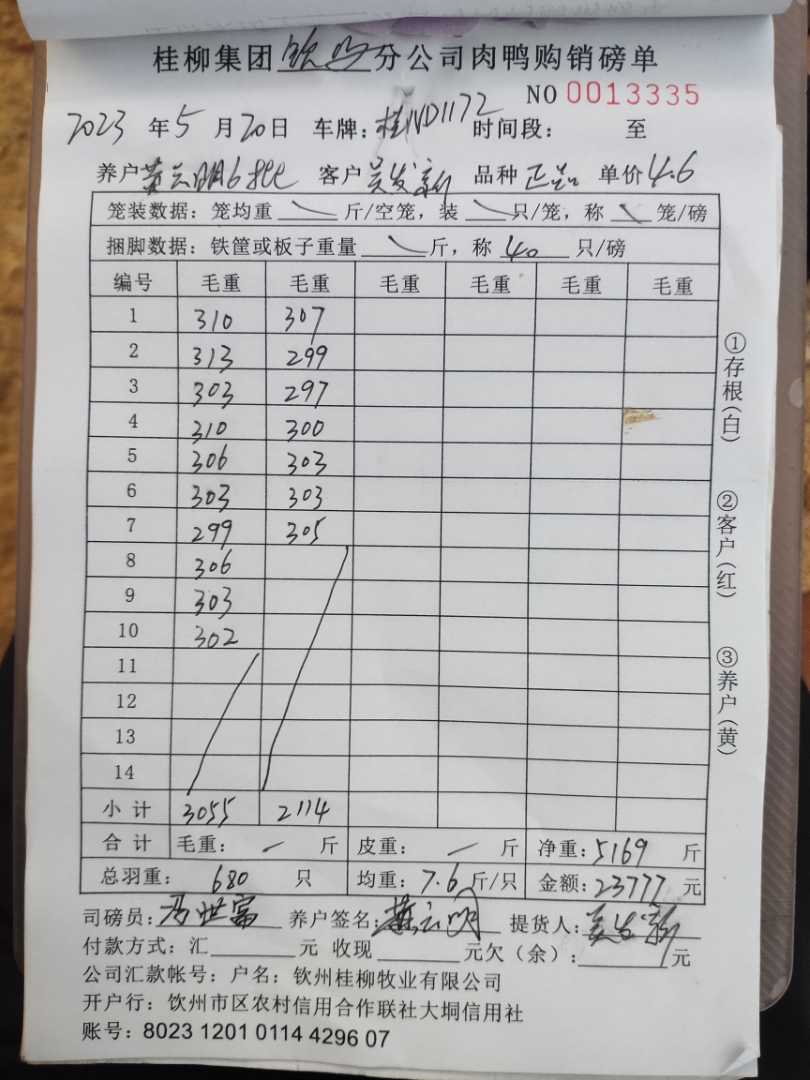 桂柳集团钦州分公司肉鸭购销磅单
NO 0013335
2023 年 5 月 20 日 车牌: 桂ND1172 时间段: 至
养户 黄云明6批 客户 吴发新 品种 正品 单价 4.6
笼装数据: 笼均重 斤/空笼, 装 只/笼, 称 笼/磅
捆脚数据: 铁筐或板子重量 斤, 称 40 只/磅
编号 毛重 毛重 毛重 毛重 毛重 毛重
1 310 307
2 313 299
3 303 297
4 310 300
5 306 303
6 303 303
7 299 305
8 306
9 303
10 302
11
12
13
14
小 计 3055 2114
合 计 毛重: 斤 皮重: 斤 净重: 5169 斤
总羽重: 680 只 均重: 7.6 斤/只 金额: 23777 元
司磅员: 世富 养户签名: 黄云明 提货人: 吴发新
付款方式: 汇 元 收现 元欠(余): 元
公司汇款帐号: 户名: 钦州桂柳牧业有限公司
开户行: 钦州市区农村信用合作联社大垌信用社
账号: 8023 1201 0114 4296 07
①存根(白)
②客户(红)
③养户(黄)